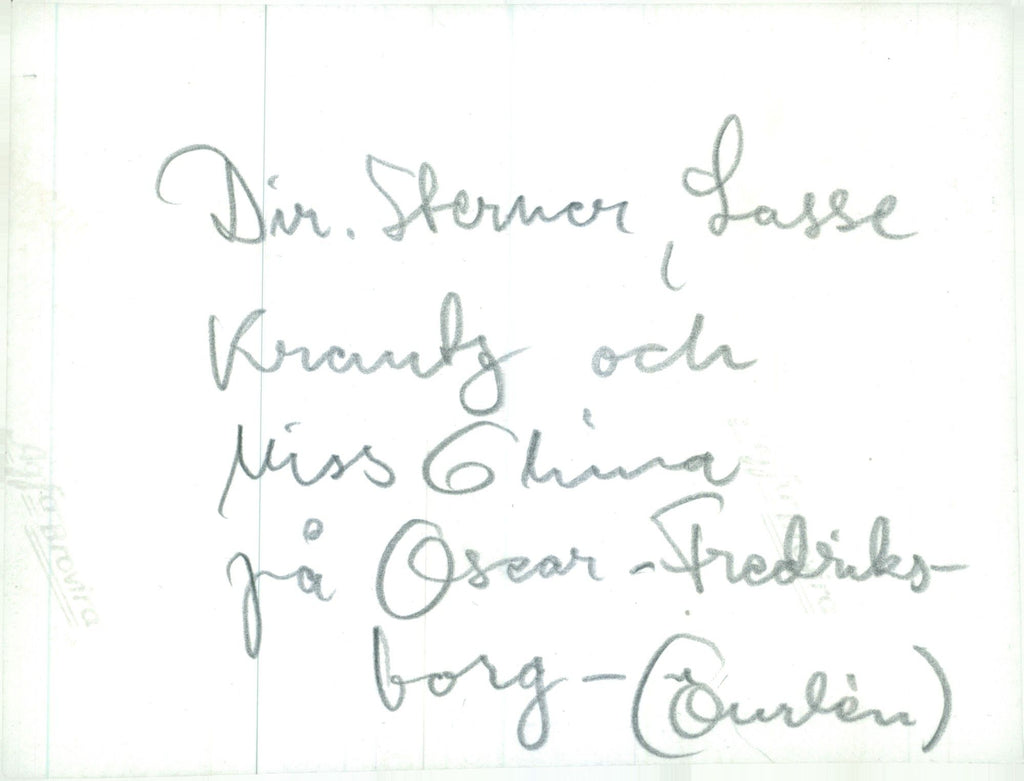 Dir. Sterner, Lasse
Krantz och
Miss China
på Oscar-Fredriks-
borg - (Öurlén)
Agfa Brovira